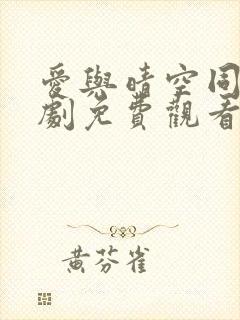 愛與晴空同
劇免費觀看
黃芬雀